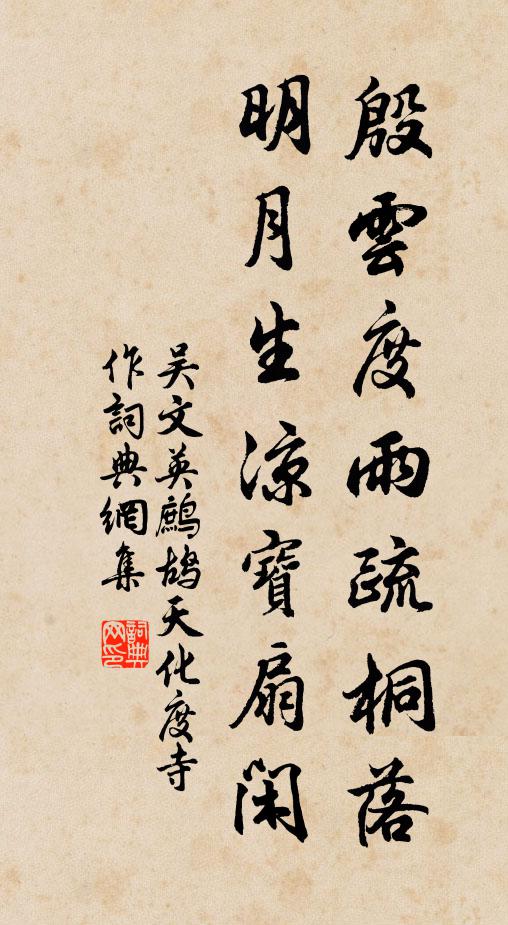 殷雲度雨疏桐落
明月生凉寶扇閑
吴文英鷓鴣天化度寺
作詞典網集
詞典網印